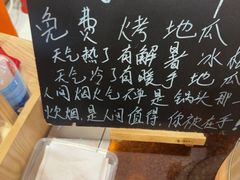 免费烤地瓜
天气热了有解暑冰
天气冷了有暖手地瓜
人间烟火气不单是锅头那一
炊烟.是人间值得.你被在乎!